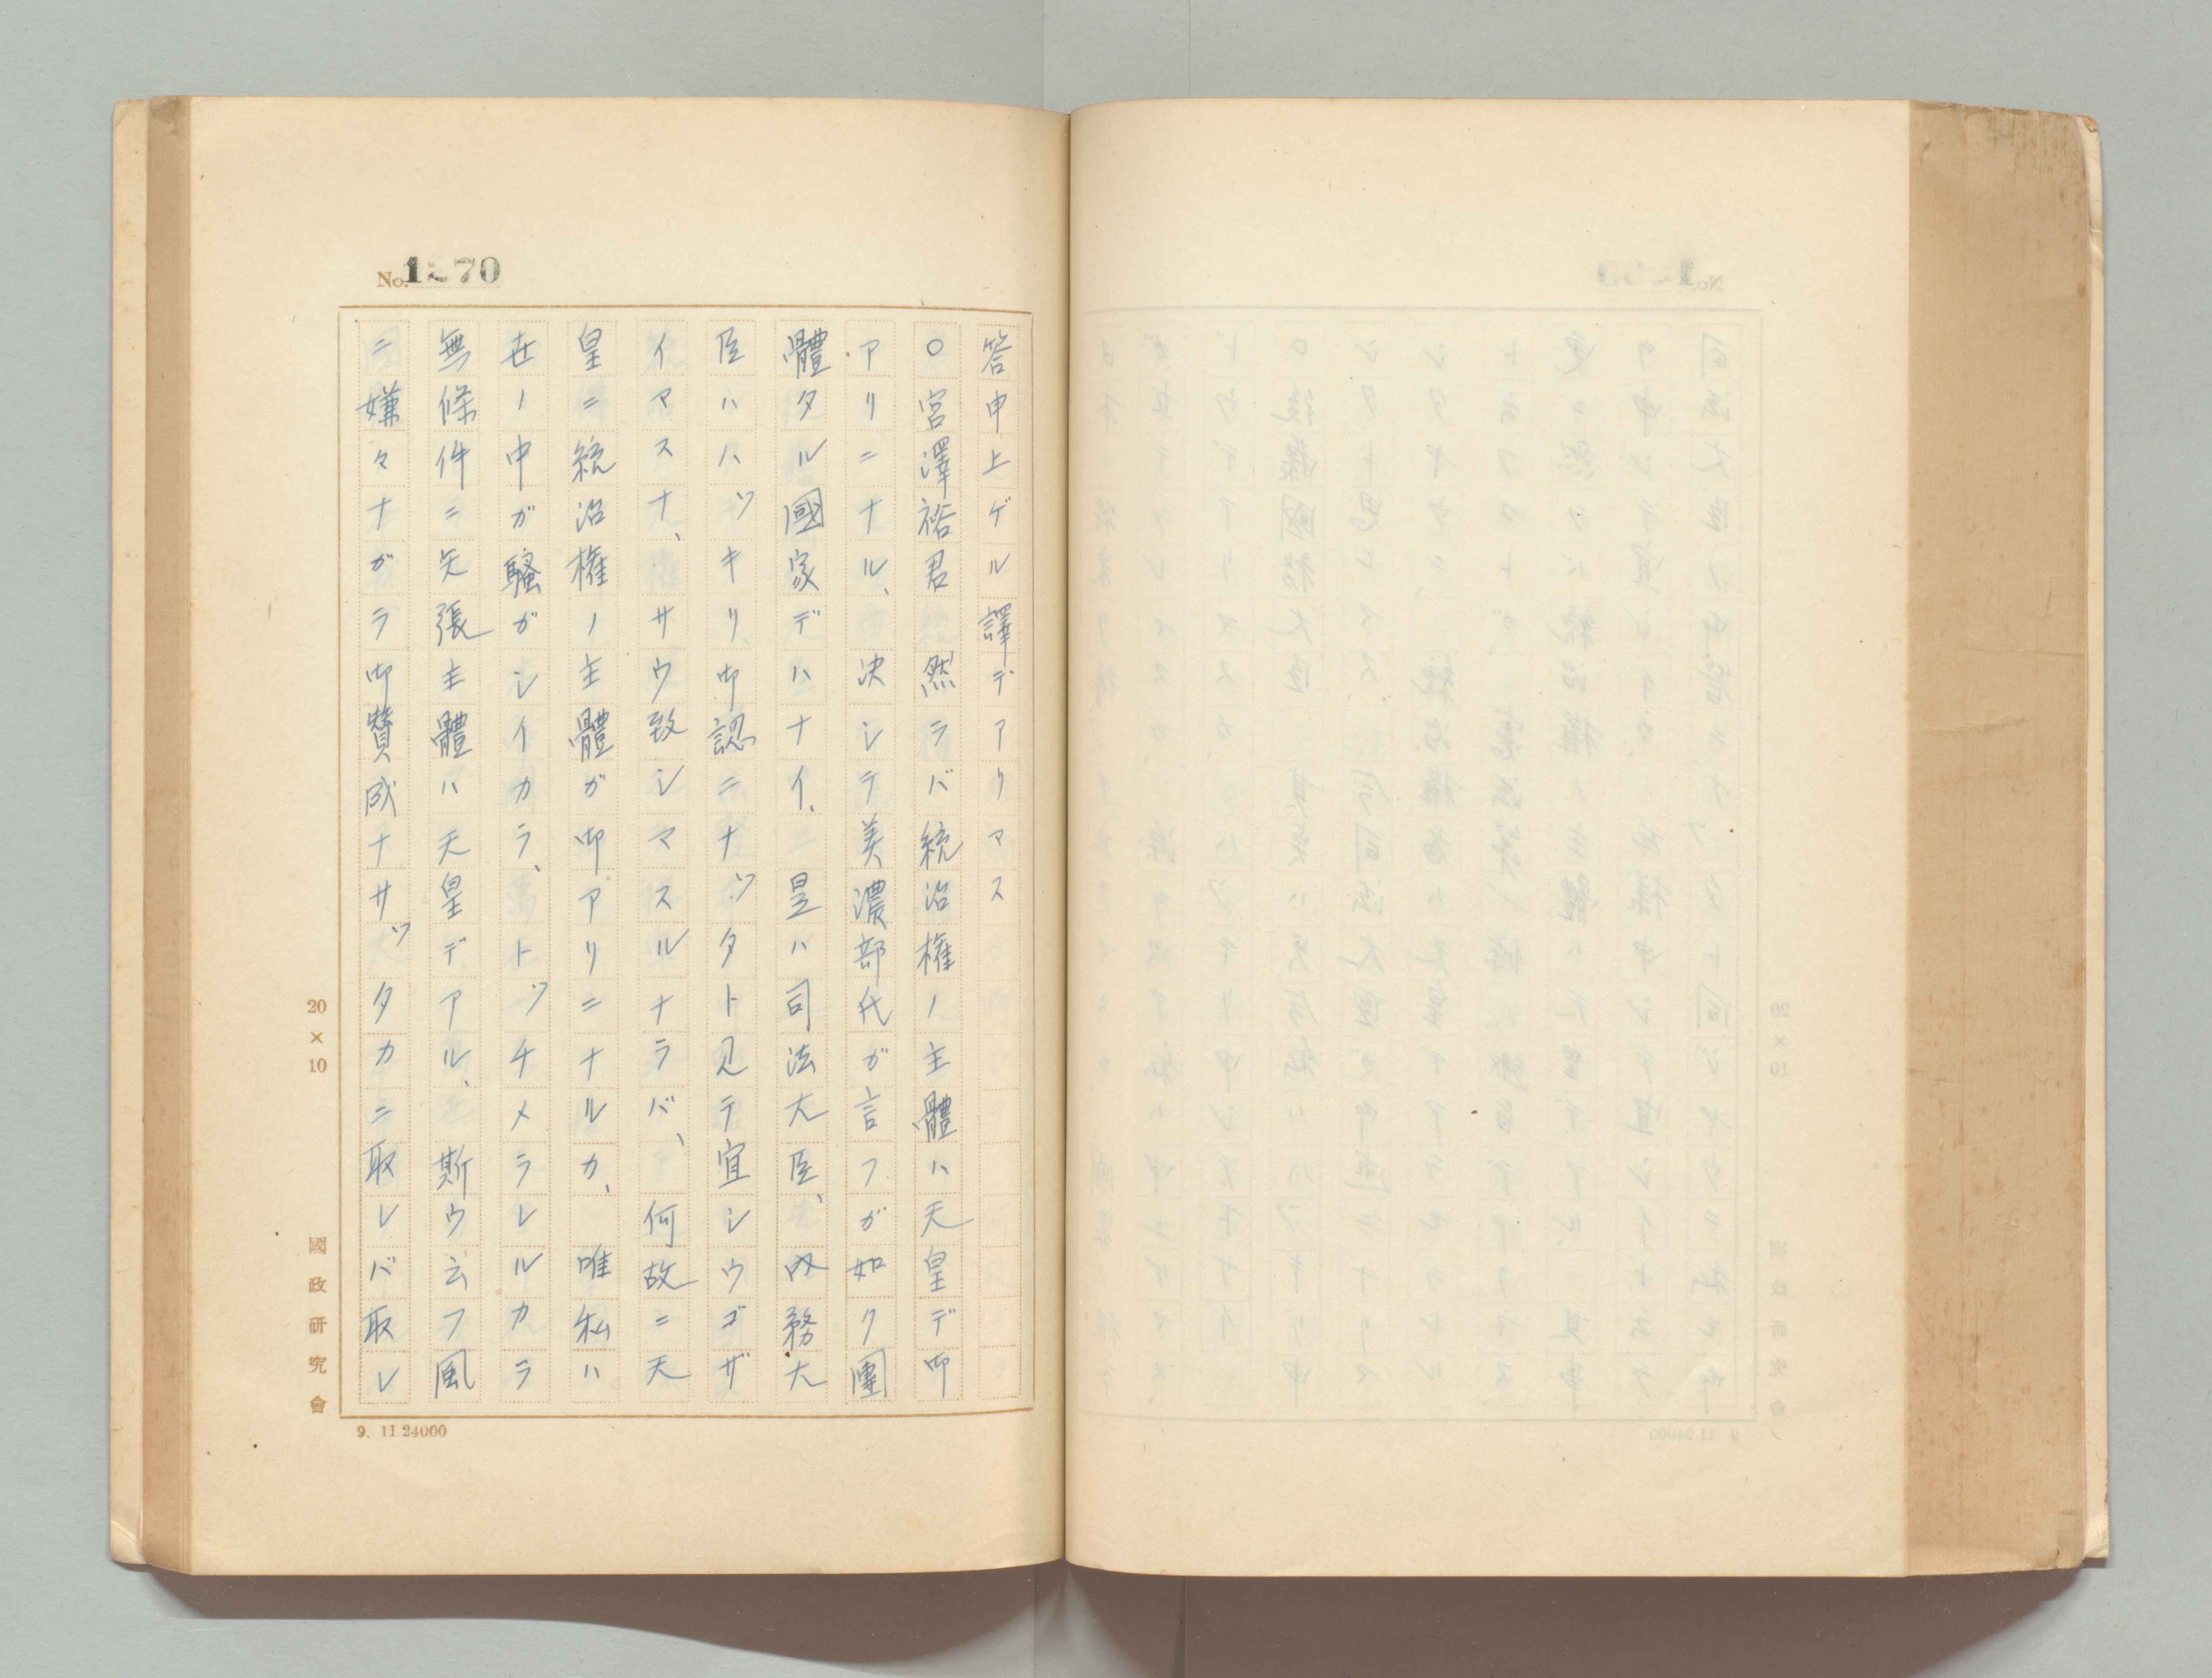 No. 1270
答申上ゲル譯デアリマス
○宮澤裕君 然ラバ統治権ノ主體ハ天皇デ御
アリニナル、決シテ美濃部氏ガ言フガ如ク團
體タル國家デハナイ、是ハ司法大臣、内務大
臣ハハッキリ御認ニナッタト見テ宜シウゴザ
イマスナ、サウ致シマスルナラバ、何故ニ天
皇ニ統治権ノ主體ガ御アリニナルカ、唯私ハ
世ノ中ガ騒ガシイカラ、トッチメラレルカラ
無條件ニ矢張主體ハ天皇デアル、斯ウ云フ風
ニ嫌々ナガラ御賛成ナサッタカニ取レバ取レ
20×10
國政研究會
9. 11 24000